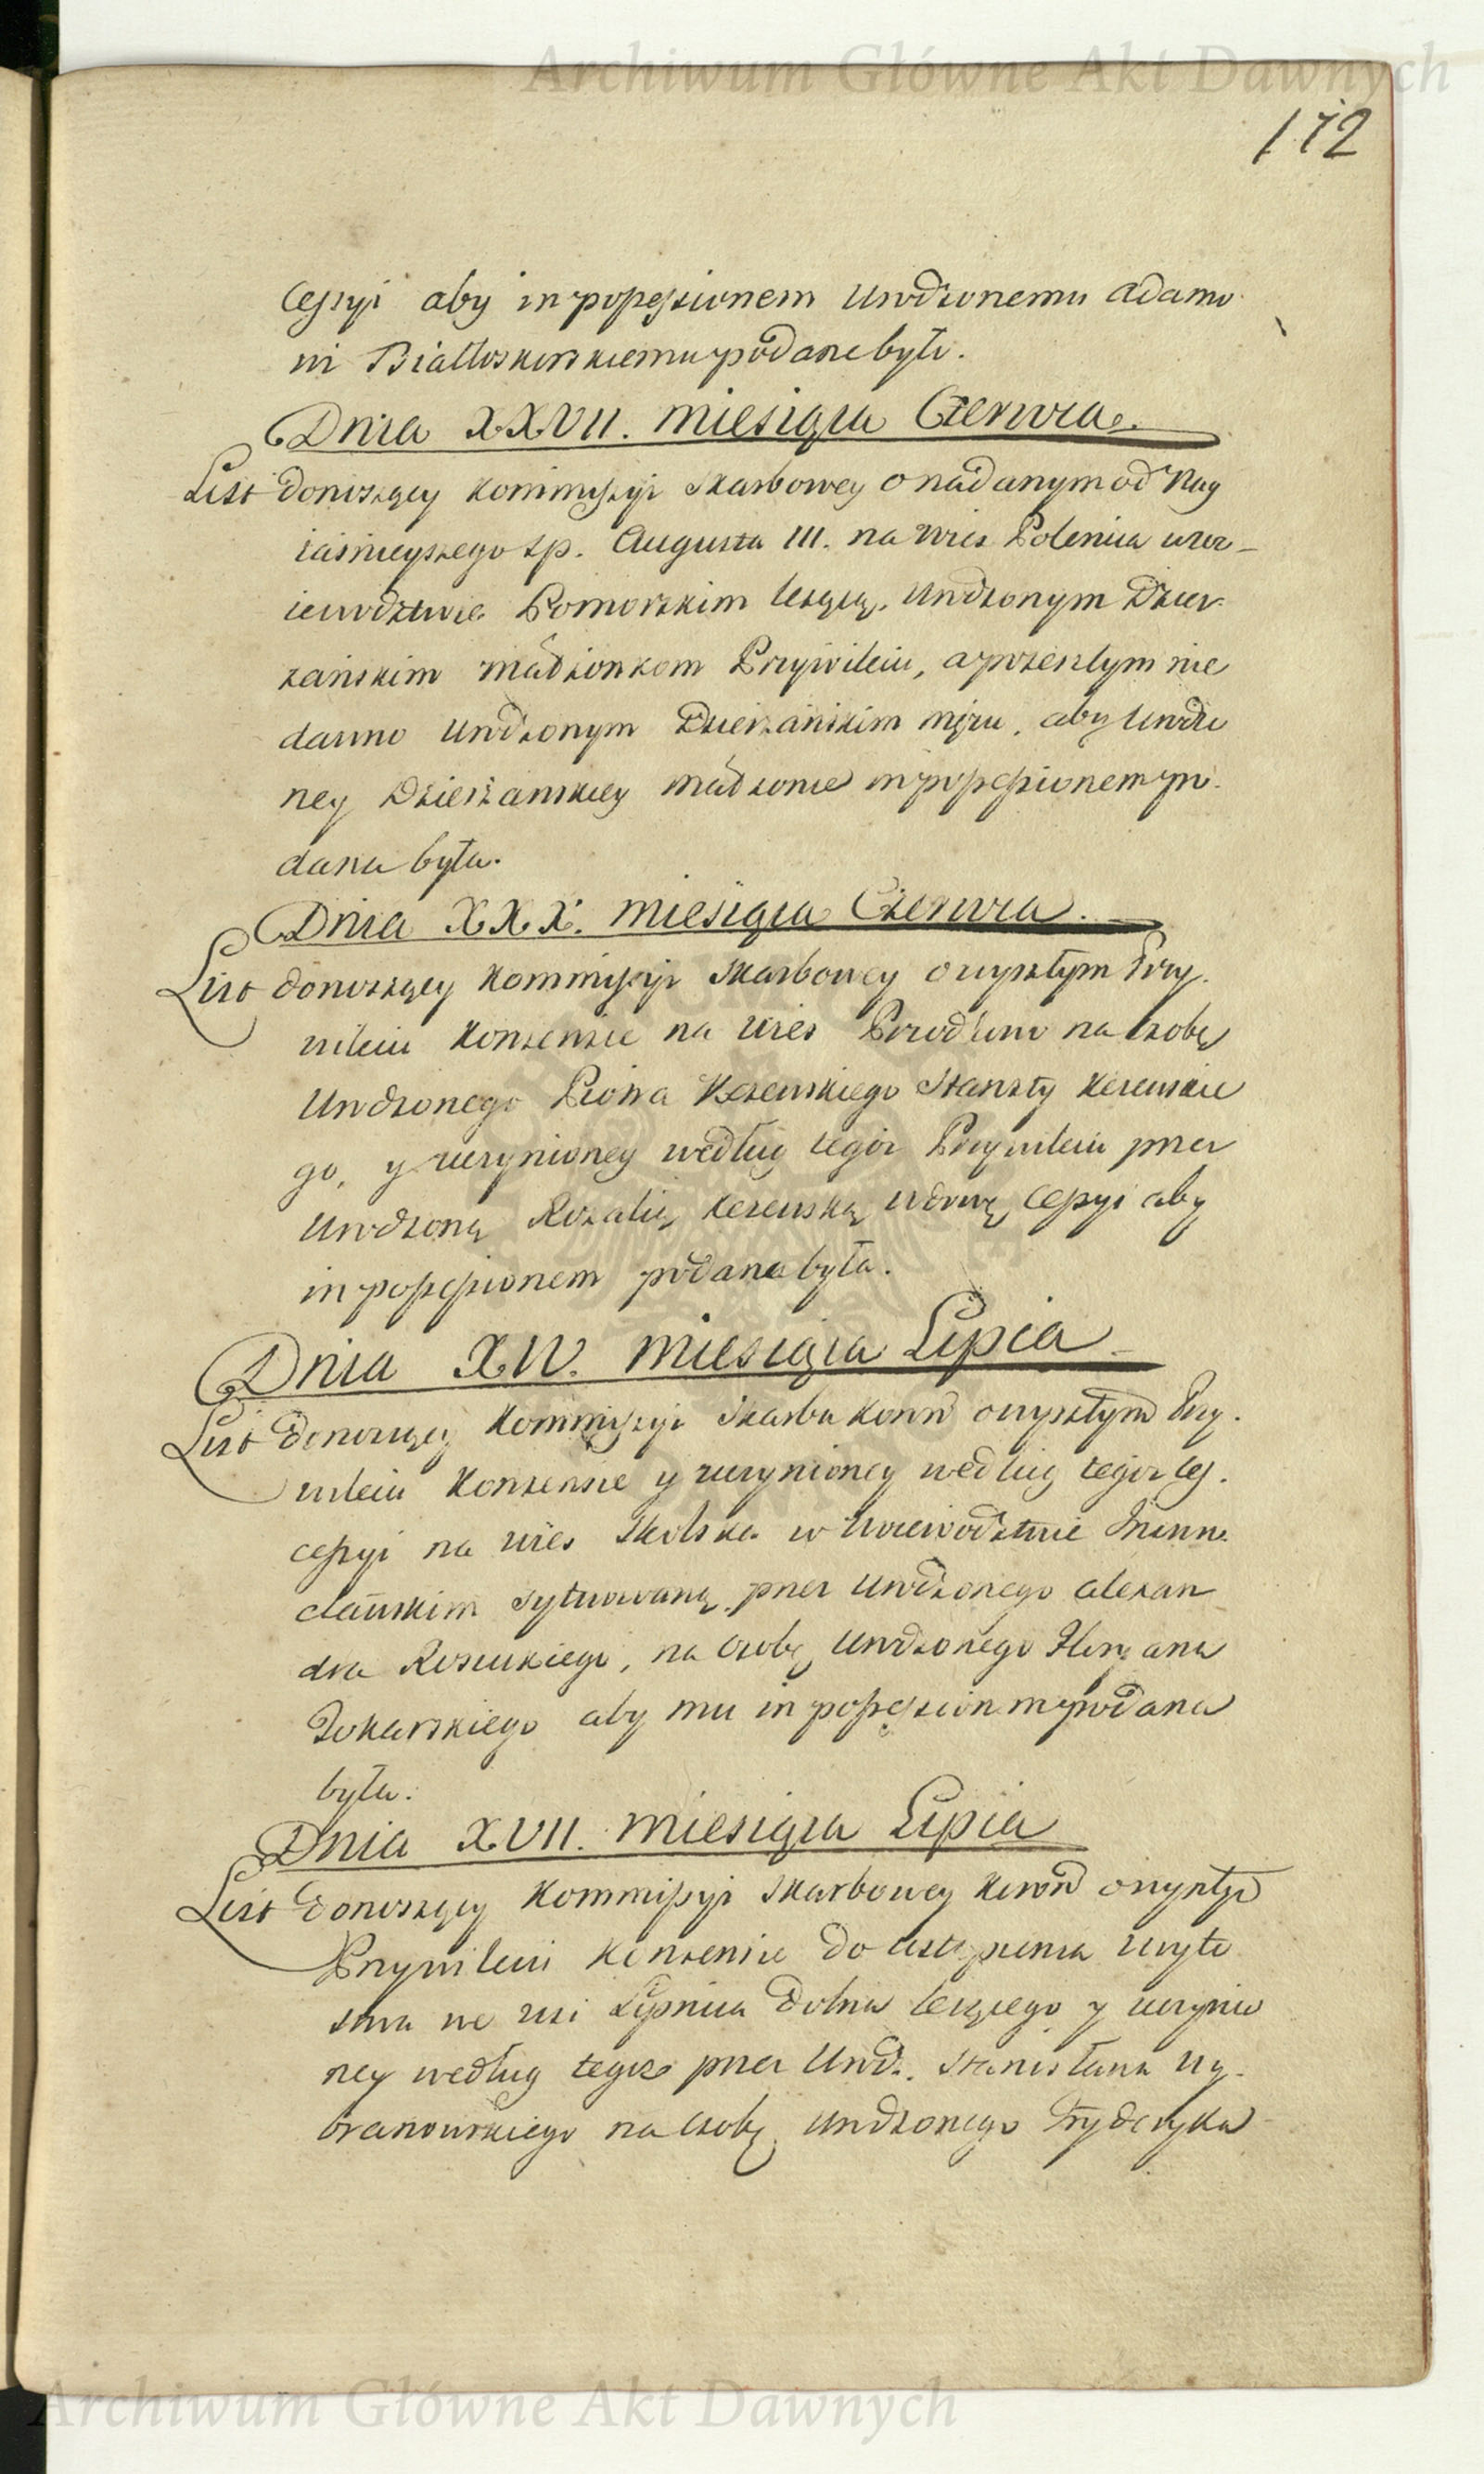 Archiwum Główne Akt Dawnych
172
Cessyi aby in possessionem Urodzonemu Adamo-
wi Białłoskorskiemu podane było.
Dnia XXVII. Miesiąca Czerwca.
List donoszący Kommissyi Skarbowey o nadanym od Nay
iaśnieyszego śp. Augusta III. na wieś Polenica w wo-
iewodztwie Pomorskim leżącą, Urodzonym Dzier-
żańskim Małżonkom Przywileiu, a po zeszłym nie
dawno Urodzonym Dzierżańskim mężu, aby Urodzo
ney Dzierżańskiey Małżonce in possessionem po-
dana była.
Dnia XXX. Miesiąca Czerwca.
List donoszący Kommissyi Skarbowey o wyszłym Przy-
wileiu Konsensie na wieś na Osobę
Urodzonego Piotra Starosty
go, y uczynioney według tegoż Przywileiu przez
Urodzoną Rozalią wdowę, Cessyi aby
in possessionem podana była.
Dnia XIV. Miesiąca Lipca
List donoszący Kommissyi Skarbu Koron o wyszłym Przy-
wileiu Konsensie y uczynioney według tegoż Ces-
cessyi na wieś Skolska w Woiewodztwie Inowro-
cławskim sytuowaną, przez Urodzonego Alexan
dra, na Osobę Urodzonego
Tokarskiego aby mu in possessionem podana
była.
Dnia XVII. Miesiąca Lipca
List donoszący Kommissyi Skarbowey Koron o wyszłym
Przywileiu Konsensie do ustąpienia Woyto
stwa we wsi Lipnica Dolna leżącego y uczynio
ney według tegoż przez Urodz. Stanisława Wy-
branowskiego na Osobę Urodzonego Fryderyka
Archiwum Główne Akt Dawnych